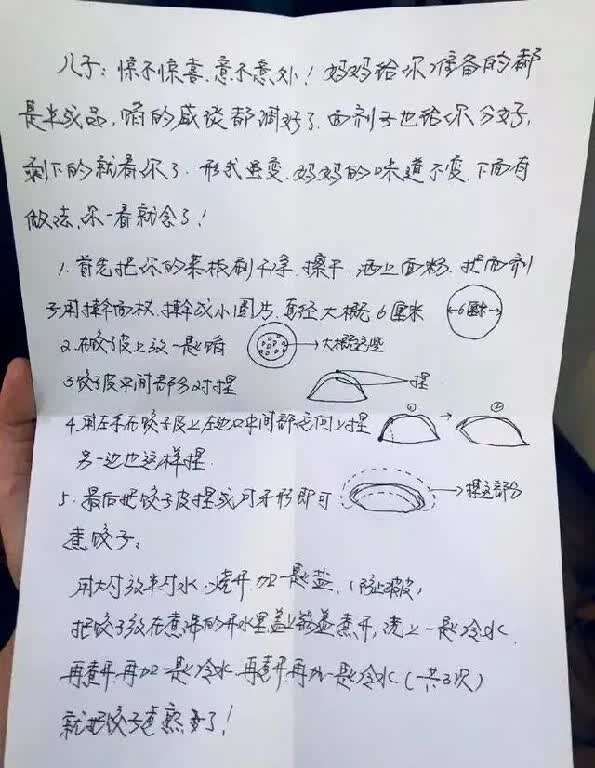 儿子：惊不惊喜、意不意外！妈妈给你准备的都
是半成品，馅的咸淡都调好了，面剂子也给你分好，
剩下的就看你了。形式虽变、妈妈的味道不变，下面有
做法，你一看就会了！
1. 首先把你的案板刷干净，擦干，洒上面粉，把面剂
子用擀面杖，擀成小圆片，直径大概6厘米 ←6厘米→
2. 在饺子皮上放一点馅 →大概这些
3. 饺子皮中间部分对捏 捏
4. 用左手在饺子皮上左边口中间部位向上捏 ① → ②
另一边也这样捏.
5. 最后把饺子皮捏成月牙形即可 →捏这部分
煮饺子：
用大锅放半锅水，烧开加一点盐，（防止破皮）
把饺子放在煮沸的开水里盖上锅盖煮开，浇上一点冷水
再煮开再加一点冷水，再煮开再加一点冷水，（一共3次）
就把饺子煮熟了！